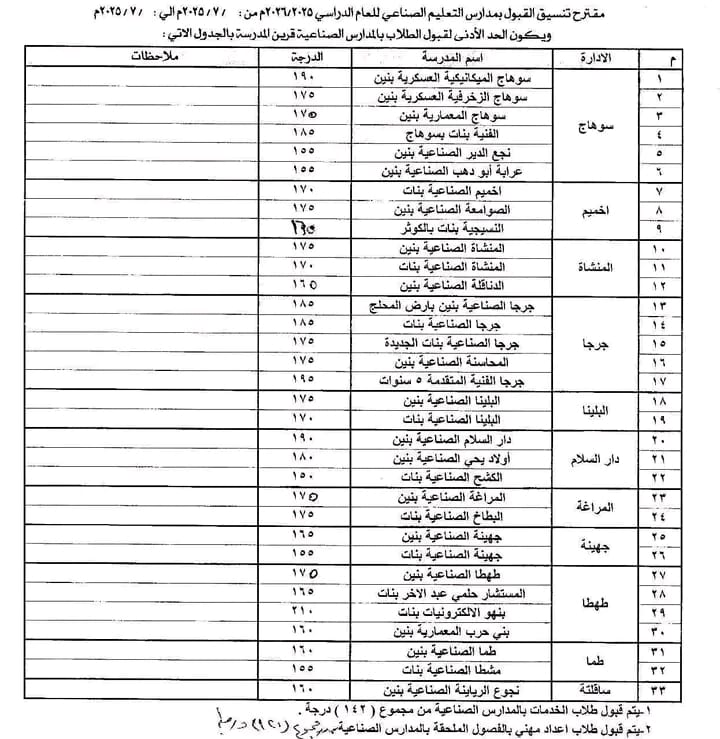 مقترح تنسيق القبول بمدارس التعليم الصناعي للعام الدراسي ٢٠٢٦/٢٠٢٥م من: / /٢٠٢٥/٧م الي: / /٢٠٢٥/٧م
ويكون الحد الأدنى لقبول الطلاب بالمدارس الصناعية قرين المدرسة بالجدول الاتي:
م الادارة اسم المدرسة الدرجة ملاحظات
١ سوهاج سوهاج الميكانيكية العسكرية بنين ١٩٠
٢ سوهاج الزخرفية العسكرية بنين ١٧٥
٣ سوهاج المعمارية بنين ١٧٥
٤ الفنية بنات بسوهاج ١٨٥
٥ نجع الدير الصناعية بنين ١٥٥
٦ عرابة أبو دهب الصناعية بنين ١٥٥
٧ اخميم اخميم الصناعية بنات ١٧٠
٨ الصوامعة الصناعية بنين ١٧٥
٩ النسيجية بنات بالكوثر
١٠ المنشاة المنشاة الصناعية بنين ١٧٥
١١ المنشاة الصناعية بنات ١٧٠
١٢ الدناقلة الصناعية بنين ١٦٥
١٣ جرجا جرجا الصناعية بنين بارض المحلج ١٨٥
١٤ جرجا الصناعية بنات ١٨٥
١٥ جرجا الصناعية بنات الجديدة ١٧٥
١٦ المحاسنة الصناعية بنين ١٧٥
١٧ جرجا الفنية المتقدمة ٥ سنوات ١٩٥
١٨ البلينا البلينا الصناعية بنين ١٧٥
١٩ البلينا الصناعية بنات ١٧٠
٢٠ دار السلام دار السلام الصناعية بنين ١٩٠
٢١ أولاد يحي الصناعية بنين ١٨٠
٢٢ الكشح الصناعية بنات ١٥٠
٢٣ المراغة المراغة الصناعية بنين ١٧٥
٢٤ البطاخ الصناعية بنات ١٧٥
٢٥ جهينة جهينة الصناعية بنين ١٦٥
٢٦ جهينة الصناعية بنات ١٥٥
٢٧ طهطا طهطا الصناعية بنين ١٧٥
٢٨ المستشار حلمي عبد الاخر بنات ١٦٥
٢٩ بنهو الالكترونيات بنات ٢١٠
٣٠ بني حرب المعمارية بنين ١٦٠
٣١ طما طما الصناعية بنين ١٦٠
٣٢ مشطا الصناعية بنات ١٥٥
٣٣ ساقلتة نجوع الرياينة الصناعية بنين ١٦٠
١-يتم قبول طلاب الخدمات بالمدارس الصناعية من مجموع ( ١٤٢ ) درجة .
٢-يتم قبول طلاب اعداد مهني بالفصول الملحقة بالمدارس الصناعية من مجموع